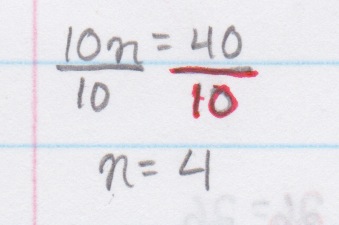 10n = 40
10 10
n = 4